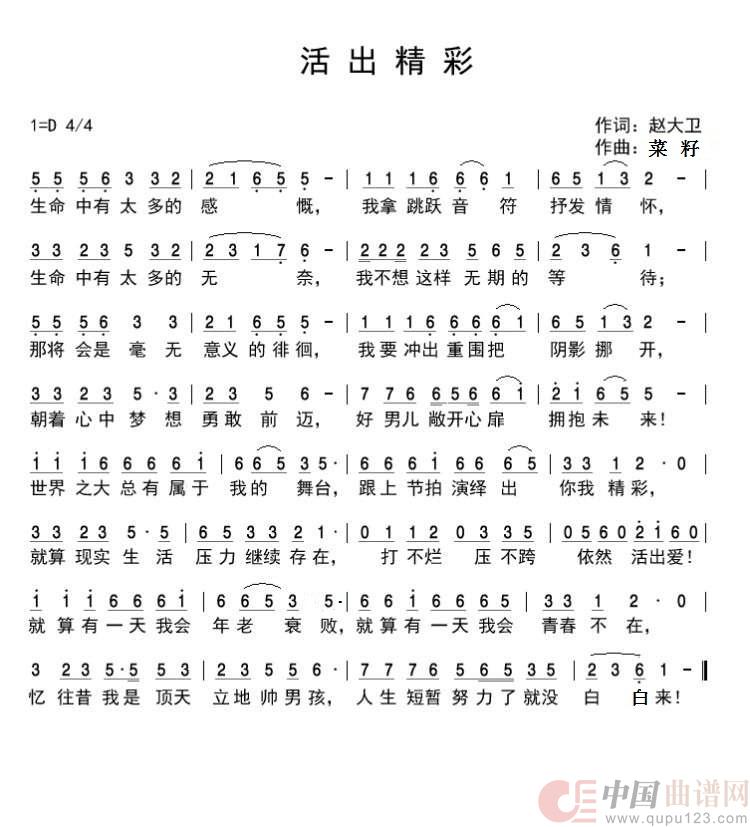 活出精彩
1=D 4/4
作词：赵大卫
作曲：菜籽
5 5 5 6 3 3 2 | 2 1 6 5 5 - | 1 1 1 6 6 6 1 | 6 5 1 3 2 - |
生命中有太多的感慨，我拿跳跃音符抒发情怀，
3 3 2 3 5 3 2 | 2 3 1 7 6 - | 2 2 2 2 2 3 3 2 | 2 3 6 1 - |
生命中有太多的无奈，我不想这样无期的等待；
5 5 5 6 3 3 | 2 1 6 5 5 | 1 1 1 6 6 6 6 1 | 5 5 1 3 2 |
那将会是毫无意义的徘徊，我要冲出重围把阴影挪开，
3 3 2 3 5·3 | 2 3 2 3 5 - | 7 7 6 6 5 6 6 1 | 2 1 6 5 5 - |
朝着心中梦想勇敢前迈，好男儿敞开心扉拥抱未来！
1 1 1 6 6 6 6 1 | 6 6 5 3 5· | 6 6 6 6 6 6 6 5 | 3 3 1 2·0 |
世界之大总有属于我的舞台，跟上节拍演绎出你我精彩，
3 3 2 3 5·5 | 6 5 3 3 2 1· | 0 1 1 2 0 3 3 5 | 0 5 6 0 2 1 6 0 |
就算现实生活压力继续存在，打不烂压不跨依然活出爱！
1 1 1 6 6 6 1 | 6 6 5 3 5 | 6 6 1 6 6 6 5 | 3 3 1 2·0 |
就算有一天我会年老衰败，就算有一天我会青春不在，
3 2 3 5·5 5 3 | 2 3 5 5 5 6· | 7 7 7 6 5 6 5 3 5 | 2 3 6 1 - ||
忆往昔我是顶天立地帅男孩，人生短暂努力了就没白白来！
中国曲谱网
www.qupu123.com